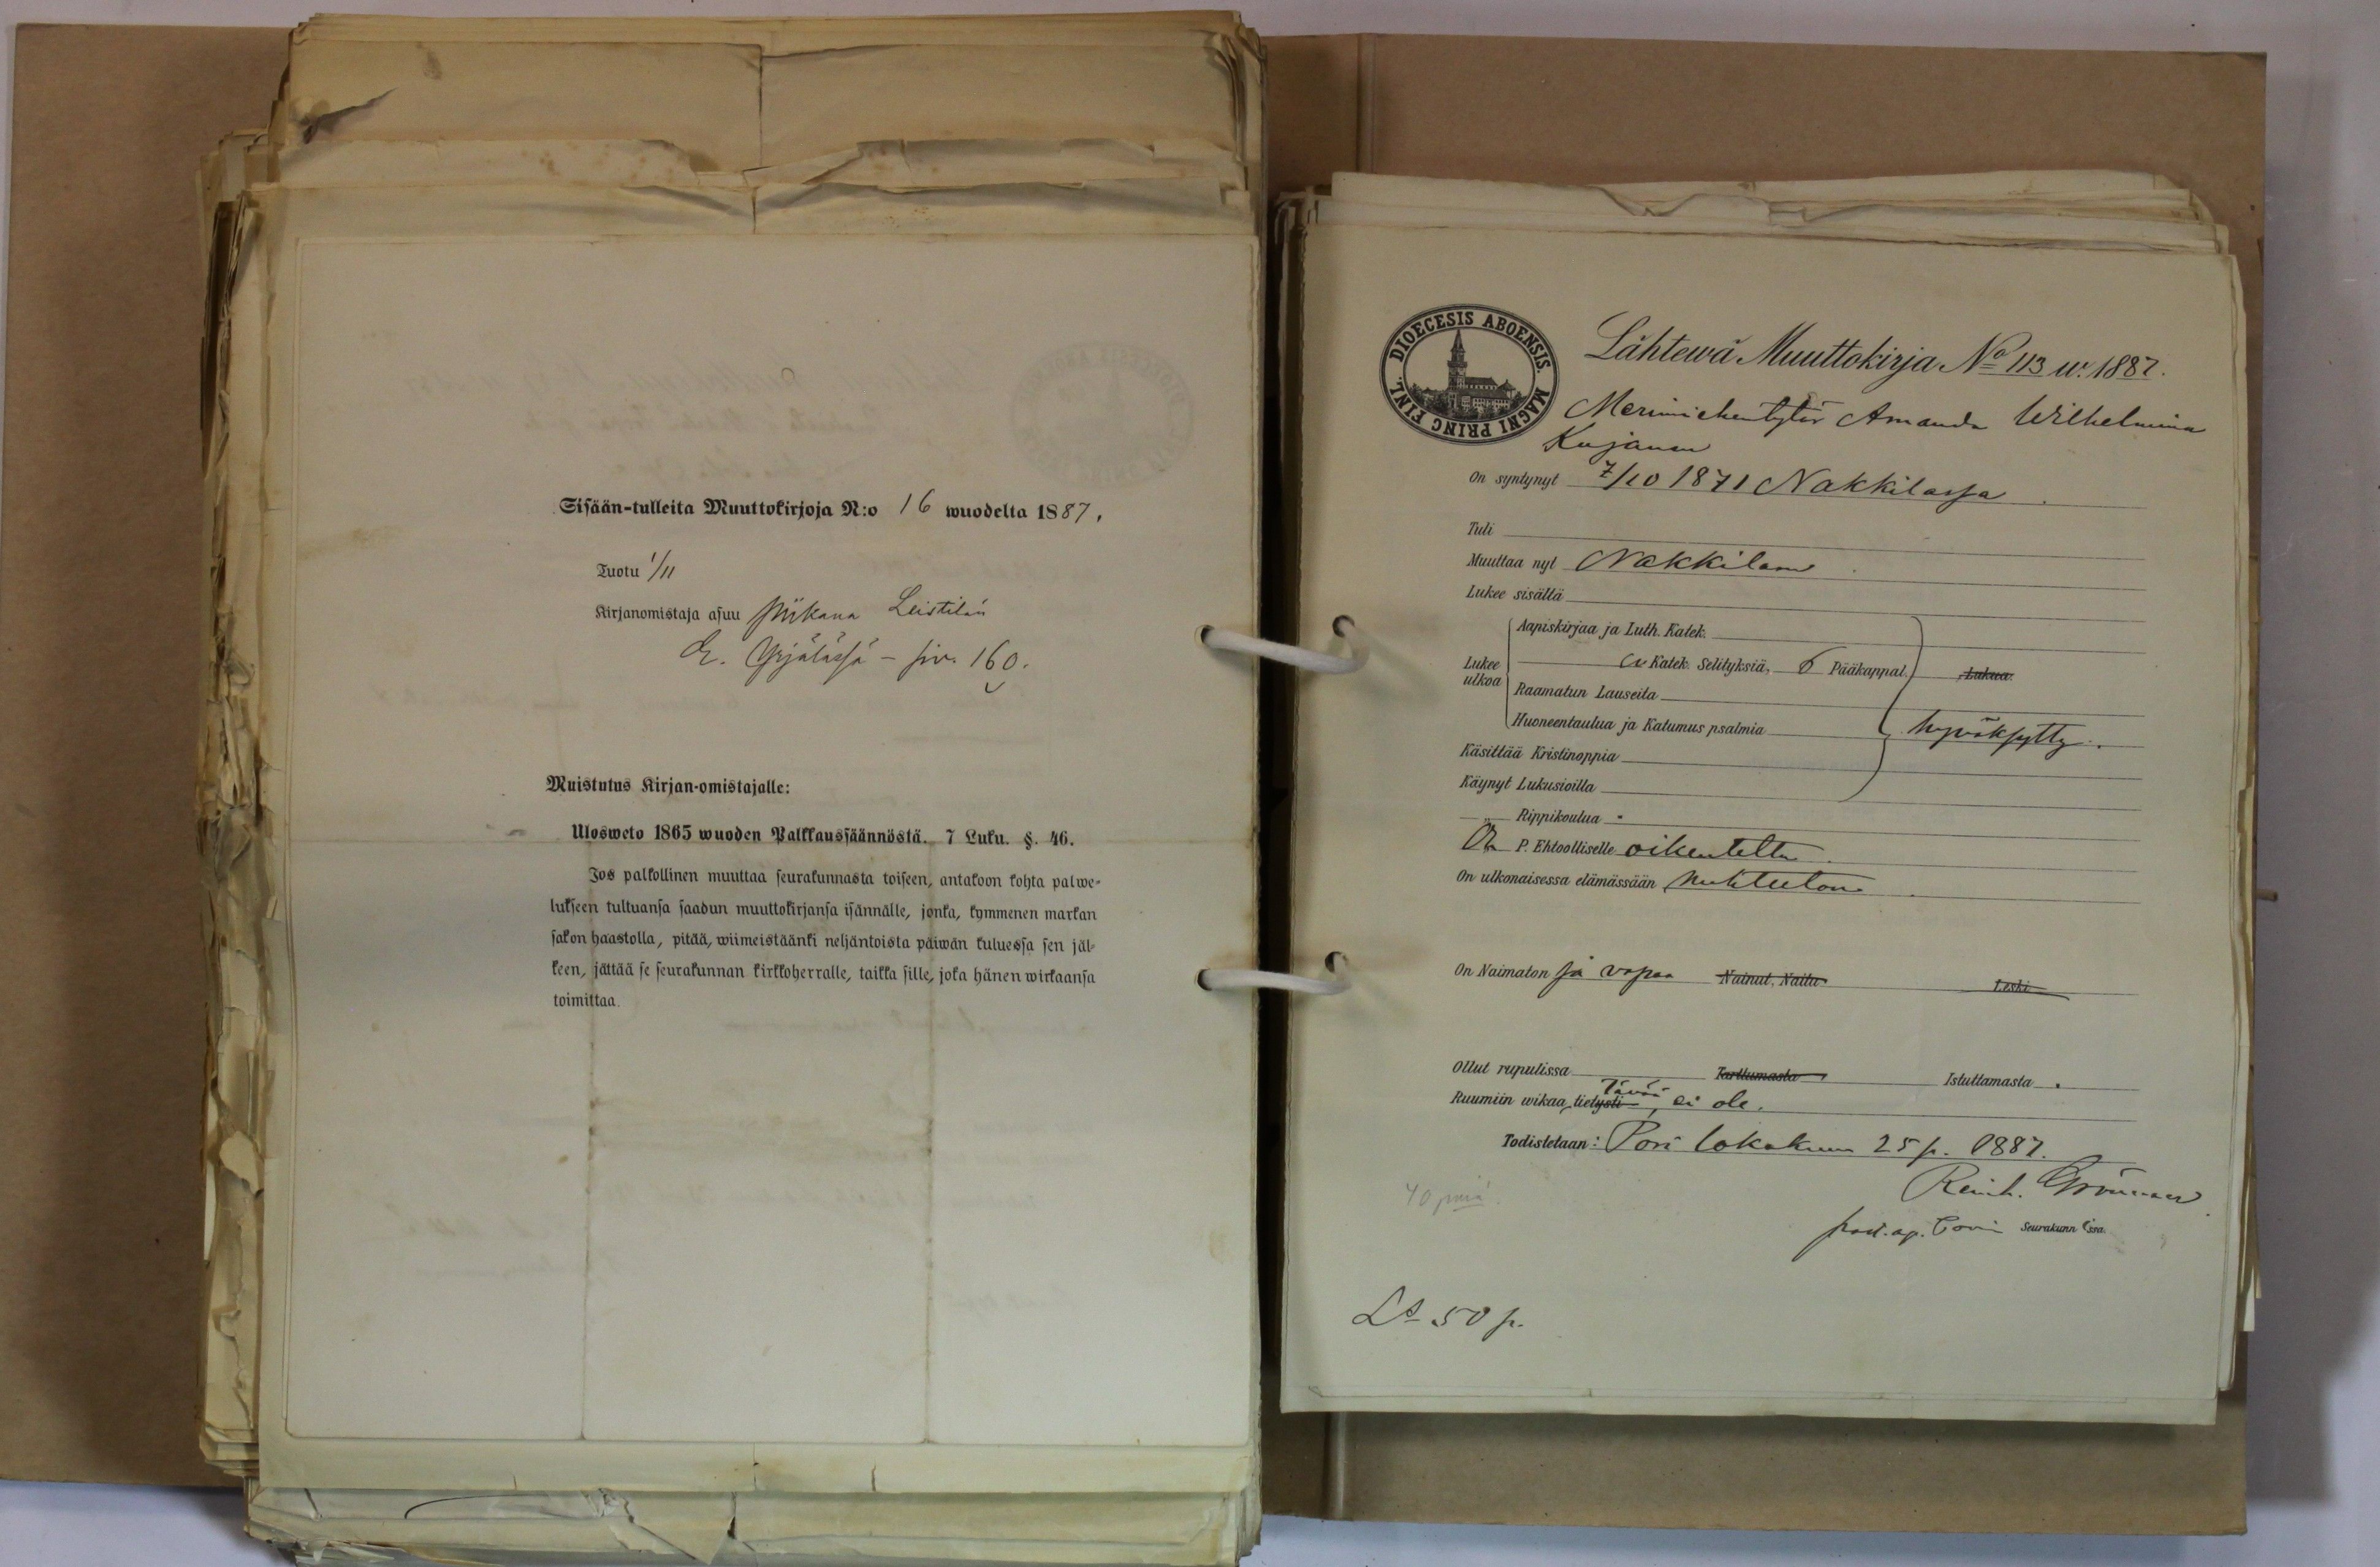 Sisään-tulleita Muuttokirjoja N:o 16 wuodelta 1887.
Tuotu 1/11
Kirjanomistaja asuu piikana Leistilän
E. Yrjälässä – siv. 160.
Muistutus Kirjan-omistajalle:
Ulosweto 1865 wuoden Palkkaussäännöstä. 7 Luku. §. 46.
Jos palkollinen muuttaa seurakunnasta toiseen, antakoon kohta palwe-
lukseen tultuansa saadun muuttokirjansa isännälle, jonka, kymmenen markan
sakon haastolla, pitää, wiimeistäänki neljäntoista päiwän kuluessa sen jäl-
keen, jättää se seurakunnan kirkkoherralle, taikka sille, joka hänen wirkaansa
toimittaa.
DIOECESIS ABOENSIS. MAGNI PRINC FINL.
Lähtewä Muuttokirja No 113 w. 1887.
Merimiehentytär Amanda Wilhelmina
Kujanen
On syntynyt 7/10 1871 Nakkilassa
Tuli
Muuttaa nyt Nakkilaan
Lukee sisältä
Aapiskirjaa ja Luth. Katek.
Lukee ulkoa
Katek. Selityksiä, 6 Pääkappal. Lukua
Raamatun Lauseita
Huoneentaulua ja Katumus psalmia hyväksytty.
Käsittää Kristinoppia
Käynyt Lukusioilla
" Rippikoulua
On P. Ehtoolliselle oikeutettu
On ulkonaisessa elämässään nuhteeton
On Naimaton ja vapaa Nainut, Naitu Leski
Ollut rupulissa Tarttumasta Istuttamasta
Ruumiin wikaa, tietysti ei ole.
Todistetaan: Pori lokakuun 25 p. 1887.
Reinh. Grönvall
past. ap. Porin Seurakunnissa.
40 p:niä
Ls 50 p.